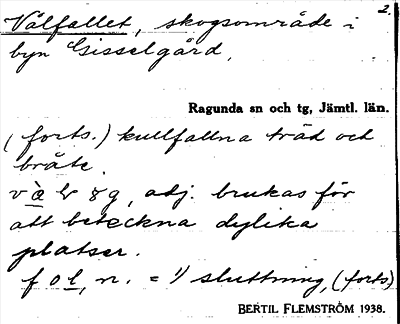 2.
Vålfallet, skogsområde i
byn Gisselgård,
Ragunda sn och tg, Jämtl. län.
(forts.) kullfallna träd och
bråte.
adj. brukas för
att beteckna dylika
platser.
f o l, n. = 1) sluttning, (forts)
BERTIL FLEMSTRÖM 1938.